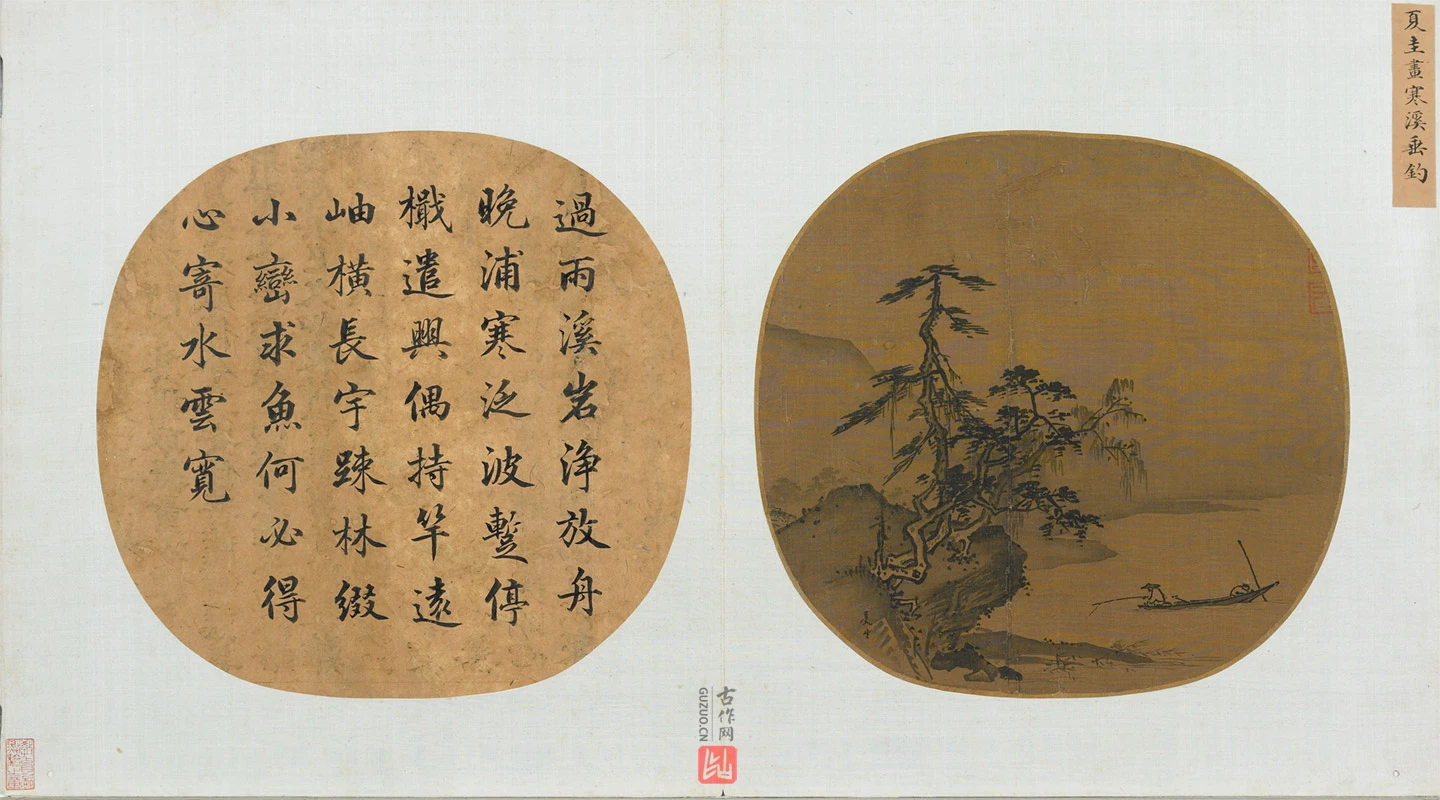 夏圭畫寒溪垂釣
過雨溪岩浄放舟
晚浦寒泛波蹔停
檝遣興偶持竿遠
岫橫長宇踈林綴
小巒求魚何必得
心寄水雲寬
古作网
GUZUO.CN